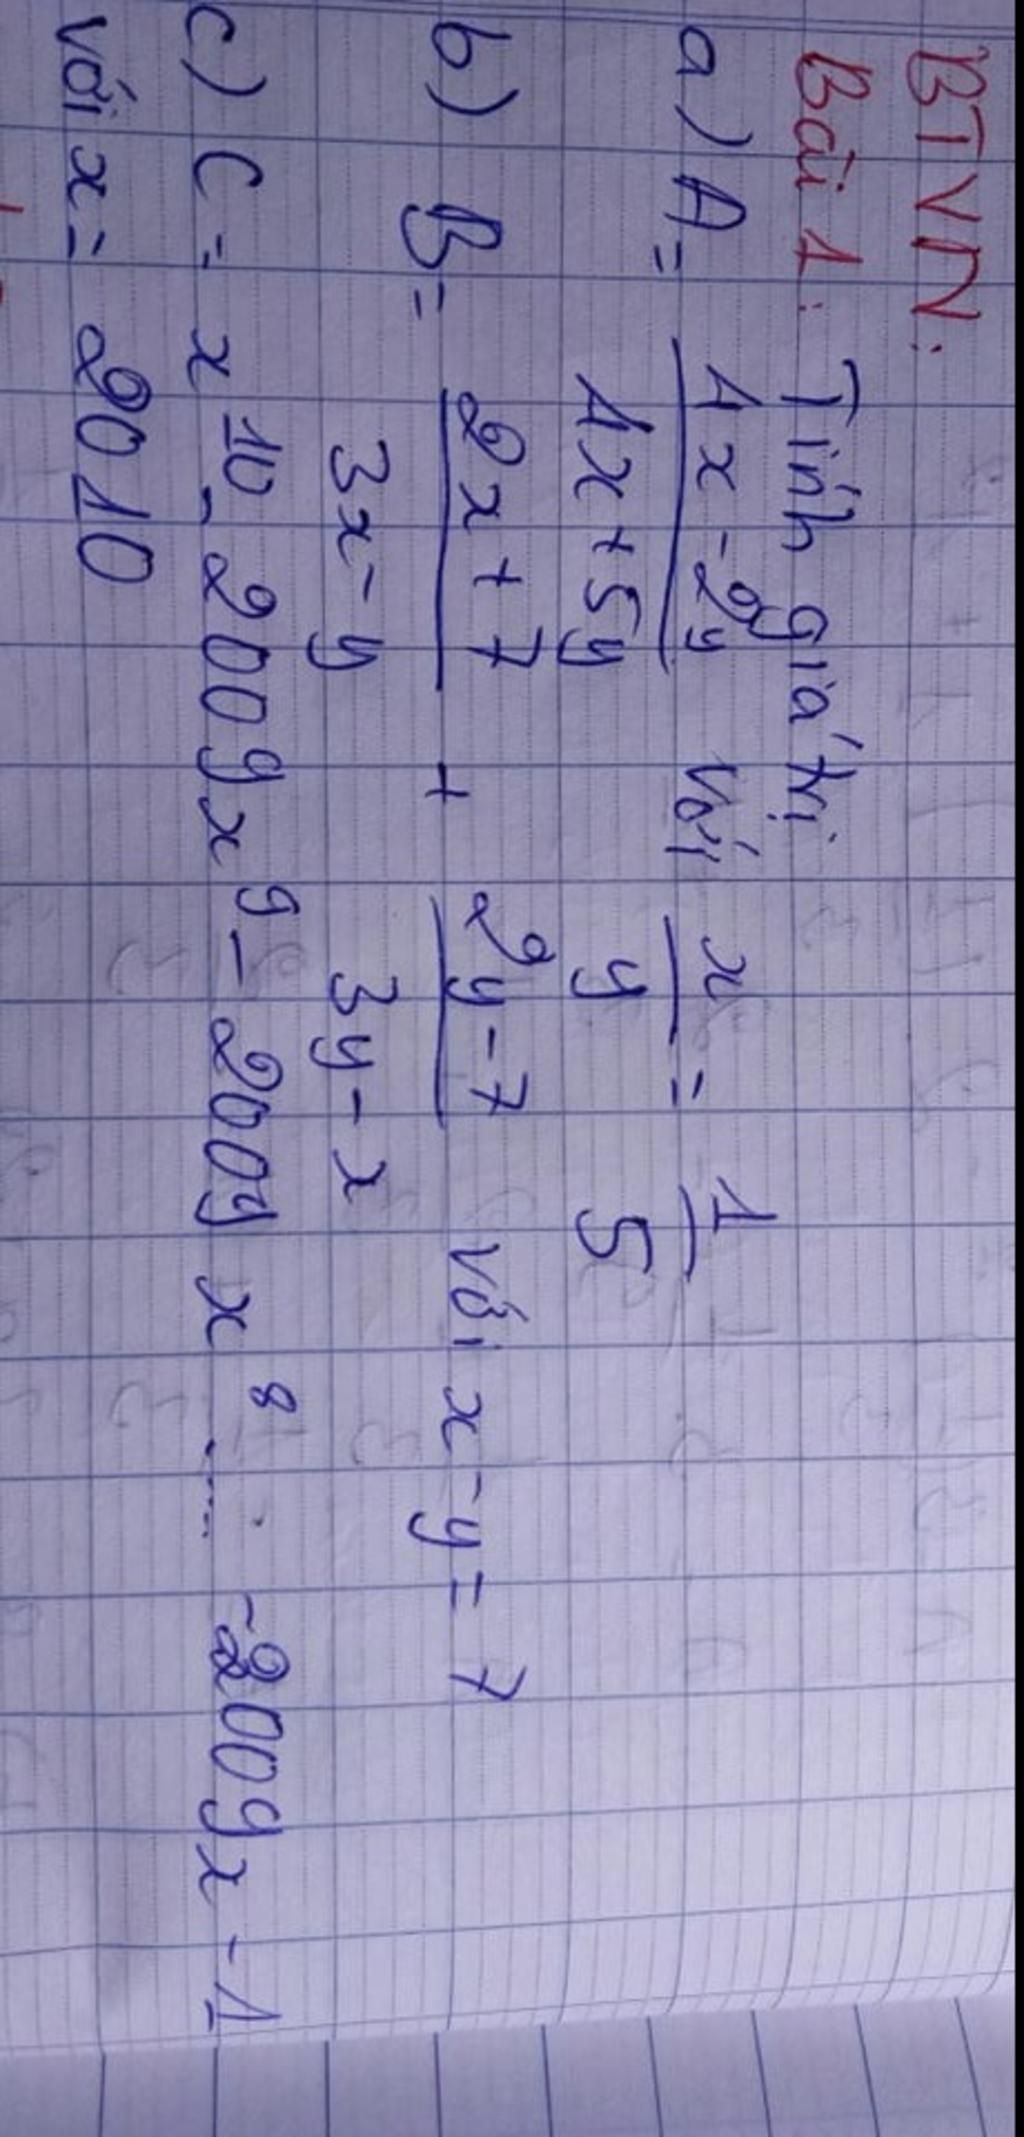 BTVN:
Bài 1: Tính giá trị
a) A = \frac{4x - 2y}{4x + 5y} với \frac{x}{y} = \frac{1}{5}
b) B = \frac{2x + 7}{3x - y} + \frac{2y - 7}{3y - x} với x - y = 7
c) C = x^{10} - 2009x^{9} - 2009x^{8} ..... - 2009x - 1
với x = 2010